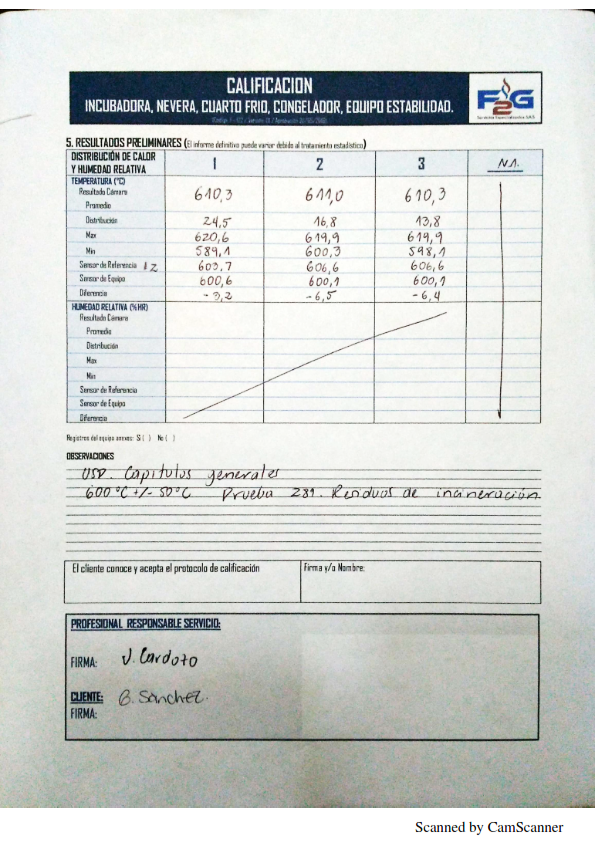 CALIFICACION
INCUBADORA, NEVERA, CUARTO FRIO, CONGELADOR, EQUIPO ESTABILIDAD.
F2G
5. RESULTADOS PRELIMINARES (El informe definitivo puede variar debido al tratamiento estadístico)
DISTRIBUCIÓN DE CALOR Y HUMEDAD RELATIVA 1 2 3 N.A.
TEMPERATURA (°C)
Resultado Cámara 610,3 611,0 610,3
Promedio
Distribución 24,5 16,8 13,8
Max 620,6 619,9 619,9
Min 589,1 600,3 598,1
Sensor de Referencia 12 603,7 606,6 606,6
Sensor de Equipo 600,6 600,1 600,1
Diferencia -3,2 -6,5 -6,4
HUMEDAD RELATIVA (%HR)
Resultado Cámara
Promedio
Distribución
Max
Min
Sensor de Referencia
Sensor de Equipo
Diferencia
Registros del equipo anexos: Si ( ) No ( )
OBSERVACIONES
USP. Capitulos generales
600°C +/- 50°C Prueba 281. Residuos de incineración
El cliente conoce y acepta el protocolo de calificación Firma y/o Nombre:
PROFESIONAL RESPONSABLE SERVICIO:
FIRMA: J. Cardozo
CLIENTE: B. Sanchez.
FIRMA:
Scanned by CamScanner